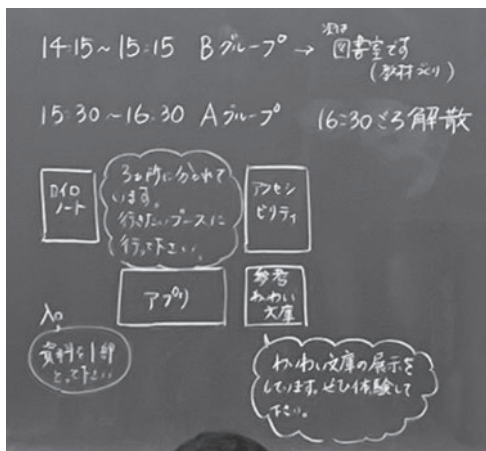 14:15～15:15 Bグループ → 次は
図書室です
(教材づくり)
15:30～16:30 Aグループ 16:30ごろ解散
ロイロ
ノート
3ヵ所に分かれて
います。
行きたいブースに
行って下さい。
アクセシ
ビリティ
アプリ
参考
わいわい
文庫
入口
資料を1部
とって下さい
わいわい文庫の展示を
しています。ぜひ体験して
下さい。